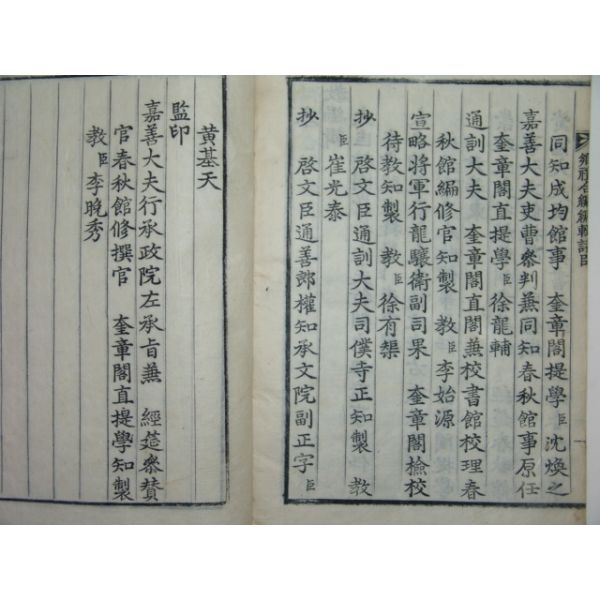 鄕禮合編編輯諸臣
同知成均館事 奎章閣提學臣沈煥之
嘉善大夫吏曹參判兼同知春秋館事原任
奎章閣直提學臣徐龍輔
通訓大夫 奎章閣直閣兼校書館校理春
秋館編修官知製 教臣李始源
宣略將軍行龍驤衛副司果 奎章閣檢校
待教知製 教臣徐有榘
抄 啓文臣通訓大夫司僕寺正知製 教
臣崔光泰
抄 啓文臣通善郎權知承文院副正字臣
黃基天
監印
嘉善大夫行承政院左承旨兼 經筵參贊
官春秋館修撰官 奎章閣直提學知製
教臣李晚秀